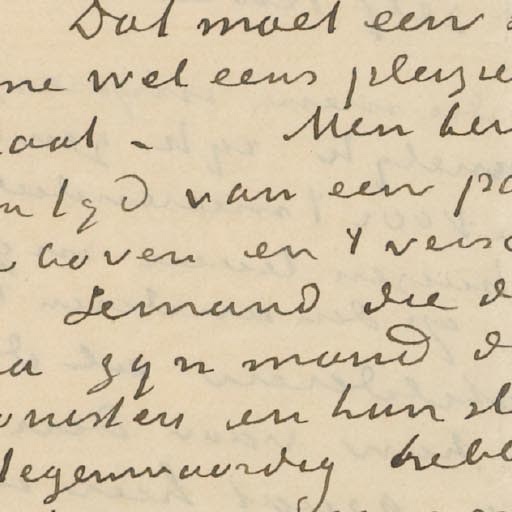 Dat moet een
me wel eens pleizie
laat - Men ken
n tyd van een pa
boven en 't versc
Iemand die d
zyn mond d
onisten en hun sl
tegenwoordig hebb